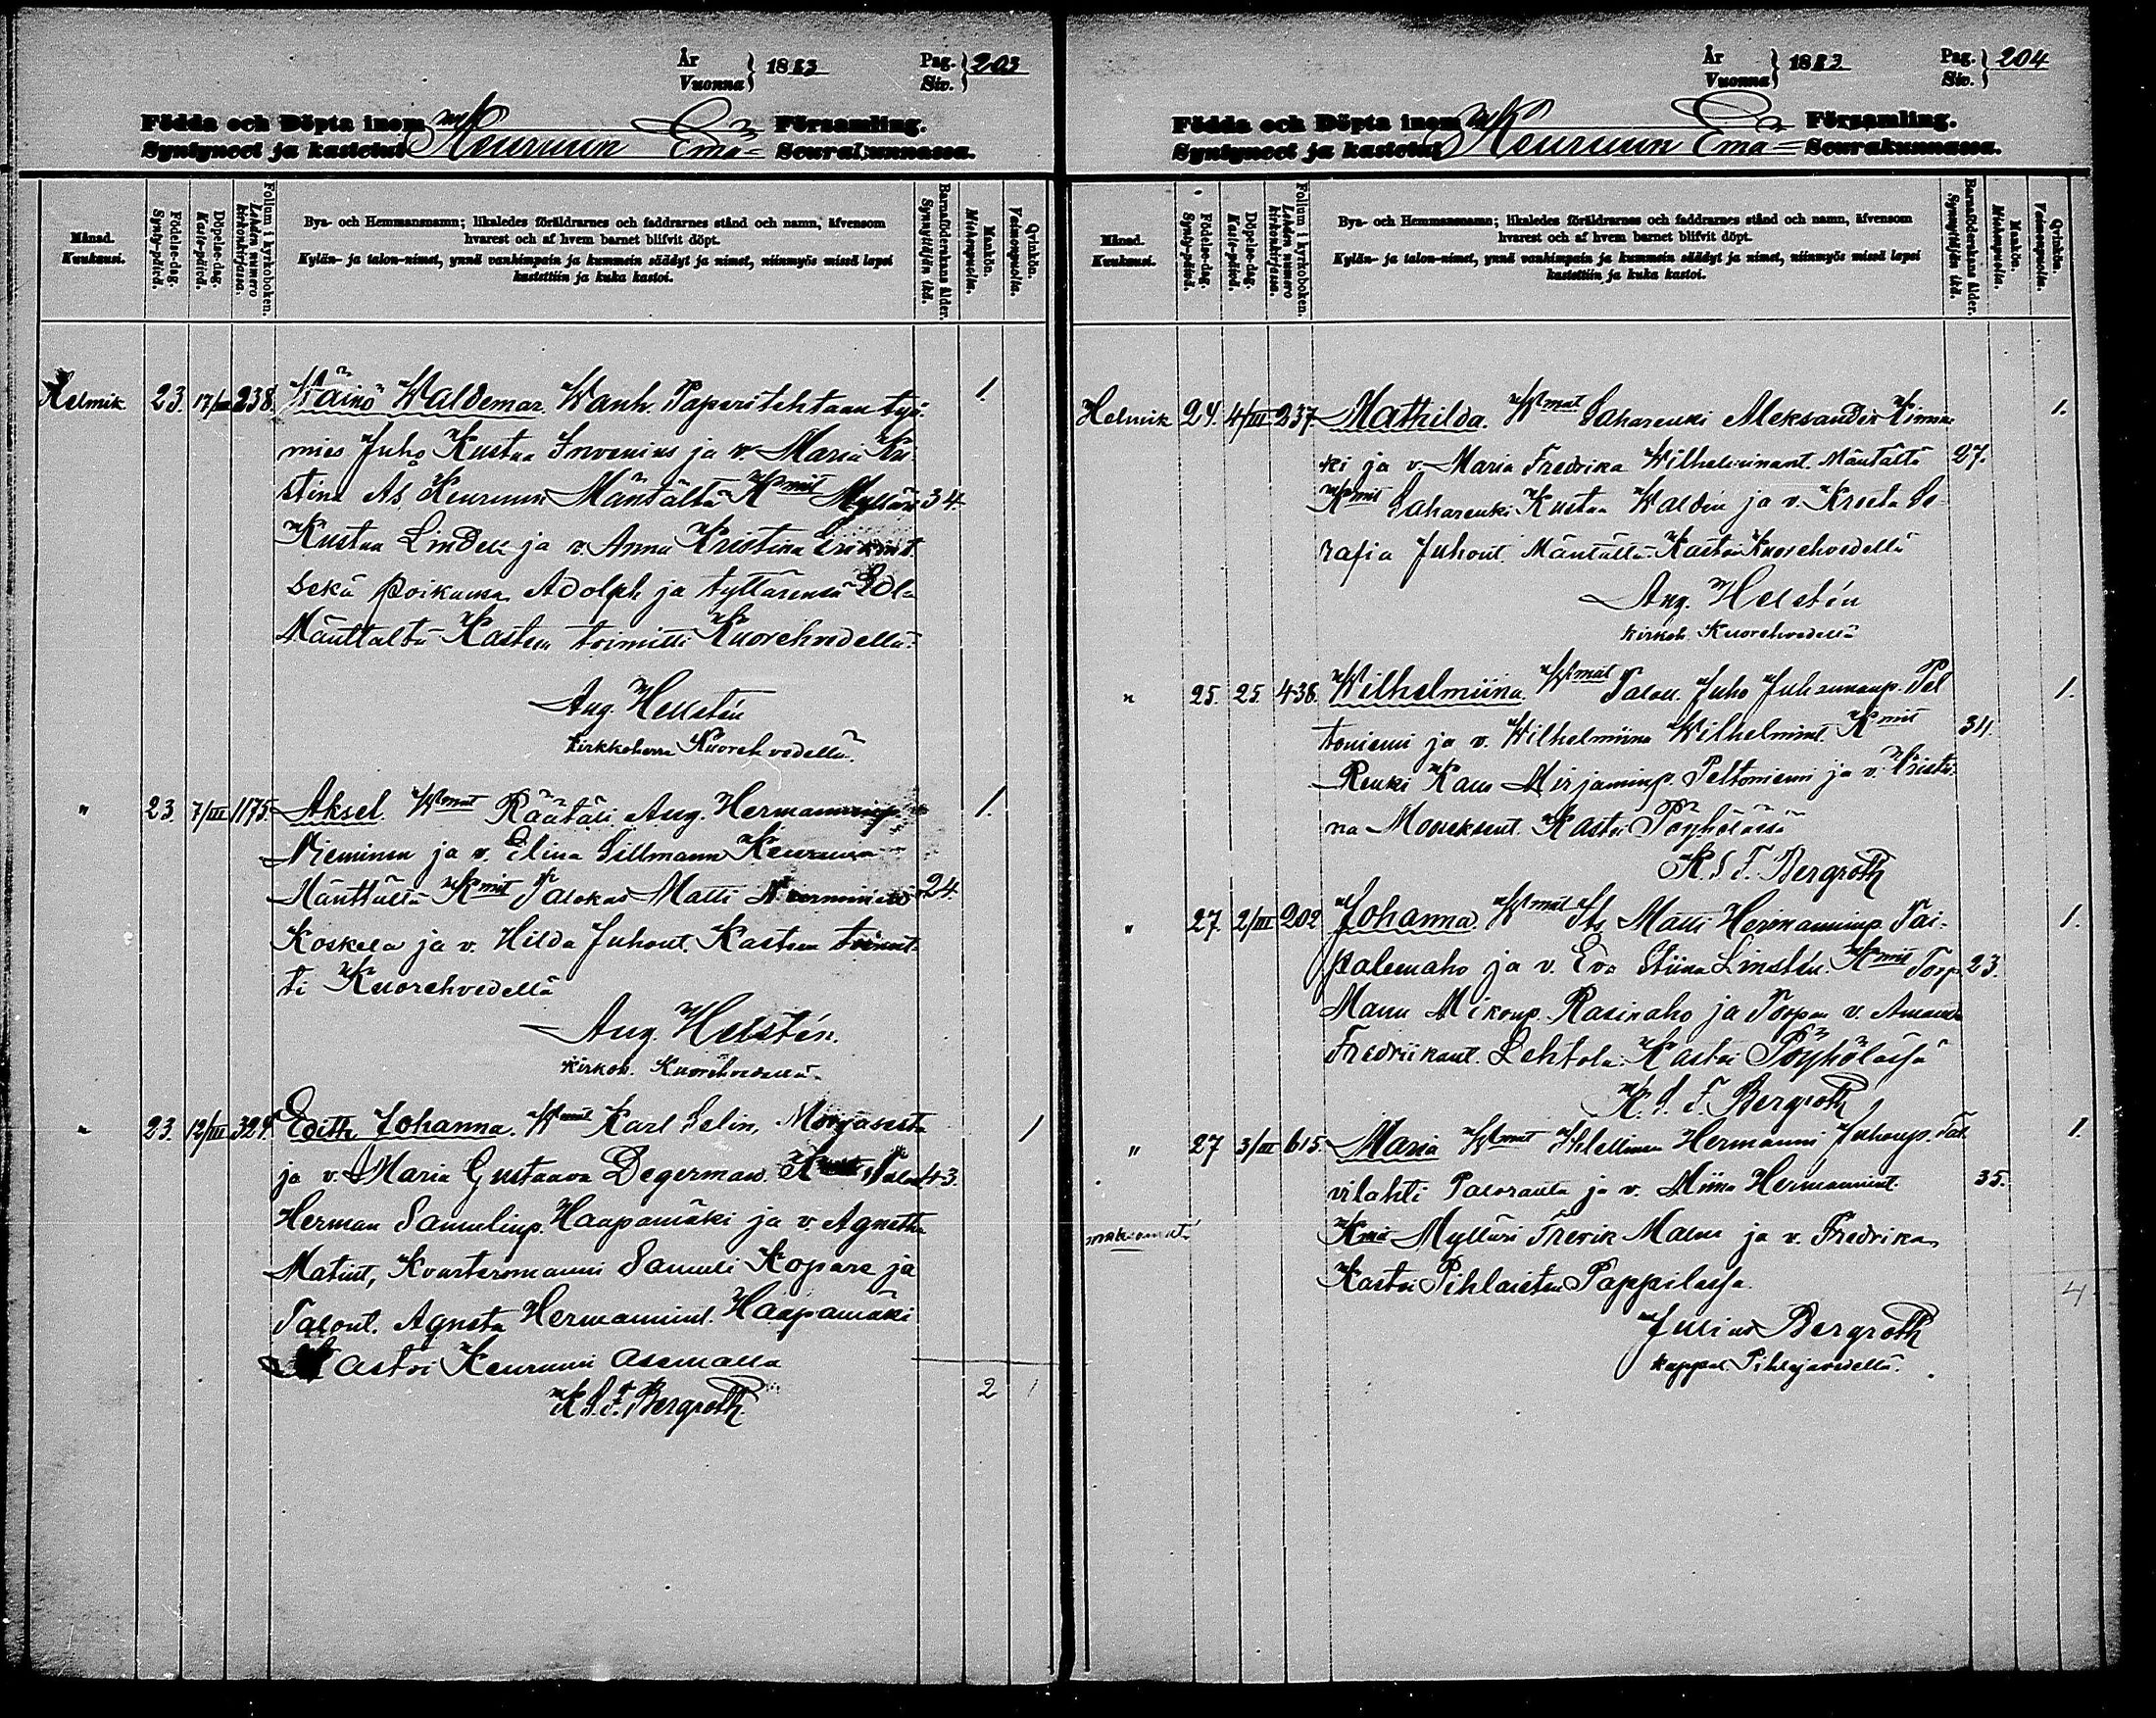 År
Vuonna } 1883
Pag.
Siv. } 203
Födda och Döpta inom
Syntyneet ja kastetut Keuruun Emä- Församling.
Seurakunnassa.
Månad.
Kuukausi.
Födelse-dag.
Synty-päivä.
Döpelse-dag.
Kaste-päivä.
Folium i kyrkoboken.
Lehden numero
kirkonkirjassa.
Bya- och Hemmansnamn; likaledes föräldrarnes och faddrarnes stånd och namn, äfvensom
hvarest och af hvem barnet blifvit döpt.
Kylän- ja talon-nimet, ynnä vanhimpain ja kummein säädyt ja nimet, niinmyös missä lapsi
kastettiin ja kuka kastoi.
Barnaföderskans ålder.
Synnyttäjän ikä.
Mankön.
Miehenpuolia.
Qvinkön.
Vaimonpuolia.
Helmik. 23. 17/III 238. Wäinö Waldemar. Wanh. Paperitehtaan työ- 1.
mies Juho Kustaa ja v. Maria Kri-
stina As. Keuruun Mäntältä Kmit Mylläri 34.
Kustaa Lindell ja v. Anna Kristina
sekä poikansa Adolph ja tyttärensä
Mänttältä Kasteen toimitti Kuorehvedellä
Aug. Hellstén
kirkkoherra Kuorehvedellä.
" 23. 7/III 1175. Aksel. Wmat Räätäli Aug. Hermanninp. 1.
Nieminen ja v. Elina Sillmann Keuruun
Mänttältä Kmit Talokas Matti 24.
Koskela ja v. Hilda Juhont. Kasteen toimit-
ti Kuorehvedellä
Aug. Hellstén.
kirkoh. Kuorehvedellä.
" 23. 12/III 324. Edith Johanna. Wmat Karl Selin, 1
ja v. Maria Gustaava Degerman. 43.
Herman Samulinp. Haapamäki ja v. Agnetha
Matint, Kvartermanni Samuli Kopare ja
Talont. Agneta Hermannint. Haapamäki
Kastoi Keuruun asemalla
K. S. F. Bergroth.
2 1
År
Vuonna } 1883
Pag.
Siv. } 204
Födda och Döpta inom
Syntyneet ja kastetut Keuruun Emä- Församling.
Seurakunnassa.
Månad.
Kuukausi.
Födelse-dag.
Synty-päivä.
Döpelse-dag.
Kaste-päivä.
Folium i kyrkoboken.
Lehden numero
kirkonkirjassa.
Bya- och Hemmansnamn; likaledes föräldrarnes och faddrarnes stånd och namn, äfvensom
hvarest och af hvem barnet blifvit döpt.
Kylän- ja talon-nimet, ynnä vanhimpain ja kummein säädyt ja nimet, niinmyös missä lapsi
kastettiin ja kuka kastoi.
Barnaföderskans ålder.
Synnyttäjän ikä.
Mankön.
Miehenpuolia.
Qvinkön.
Vaimonpuolia.
Helmik 24. 4/III 237. Mathilda. Wmat Saharenki Aleksander 1.
ki ja v. Maria Fredrika Wilhelminant. Mäntältä 27.
Kmit Saharenki Kustaa Waldén ja v. Kreeta Se-
rafia Juhont. Mäntältä. Kastoi Kuorehvedellä
Aug. Hellstén
kirkoh. Kuorehvedellä
" 25. 25. 438. Wilhelmiina. Wmat Talon. Juho Juhananp. Pel 1.
toniemi ja v. Wilhelmiina Wilhelmint. Kmit 34.
Renki Kalle Mirjaminp. Peltoniemi ja v. Kristii-
na Kastoi Pöyhölässä
K. S. F. Bergroth
" 27. 2/III 202 Johanna. Wmat Its. Matti Hermanninp. Tai- 1.
palemaho ja v. Eva Stiina Linstén. Kmit Torp. 23.
Manu Mikonp. Rasinaho ja Torpan v. Amanda
Fredriikant. Lehtola. Kastoi Pöyhölässä
K. S. F. Bergroth
" 27 3/III 615. Maria Wmat Itsellinen Hermanni Juhonp. 1.
vilahti ja v. Miina Hermannint. 35.
Kmit Mylläri Frerik Malm ja v. Fredrika
Kastoi Pihlaisten Pappilassa.
4
Julius Bergroth
kappal. Pihlajavedellä.